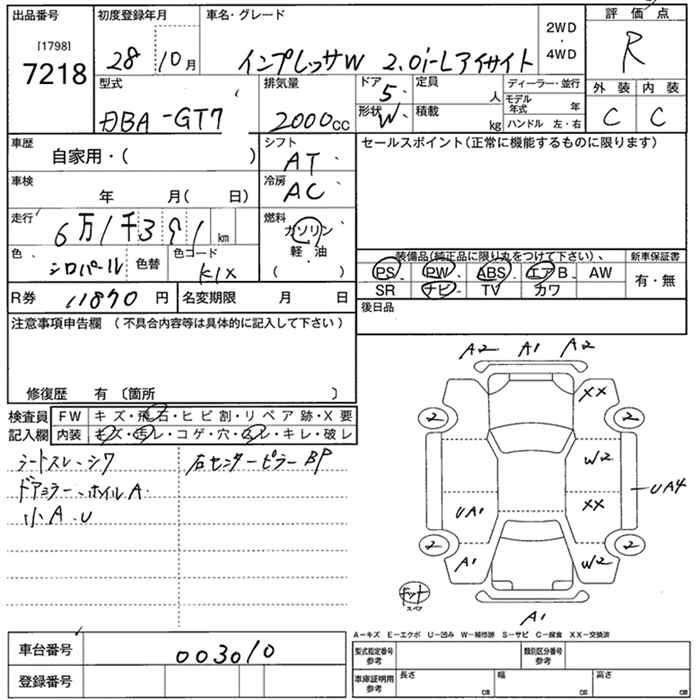 出品番号
[1798]
7218
初度登録年月
28 10月
車名・グレード
インプレッサW 2.0i-Lアイサイト
2WD
・
4WD
評価点
R
外装 内装
C C
型式
DBA-GT7
排気量
2000cc
ドア 5
形状 W
定員 人
積載 kg
ディーラー・並行
モデル年式 年
ハンドル 左・右
車歴
自家用・( )
シフト
AT
セールスポイント(正常に機能するものに限ります)
車検
年 月( 日)
冷房
AC
走行
6万1千391km
燃料
ガソリン
軽・油
( )
色
シロパール
色替
色コード
K1X
装備品(純正品に限り丸をつけて下さい)、
PS PW ABS エアB AW
SR ナビ TV カワ
新車保証書
有・無
R券 11870円
名変期限 月 日
後日品
注意事項申告欄 (不具合内容等は具体的に記入して下さい)
修復歴 有 〔箇所 〕
検査員
記入欄
FW キズ・飛石・ヒビ割・リペア跡・X要
内装 キズ・汚レ・コゲ・穴・スレ・キレ・破レ
シートスレ、シワ
右センターピラーBP
ドアミラー、ホイルA
小A、U
A2 A1 A2
XX
2 2
W2
UA4
UA1 XX
2 2
A1 W2
スペア
A1
A-キズ E-エクボ U-凹み W-補修跡 S-サビ C-腐食 XX-交換済
車台番号
003010
登録番号
型式指定番号
参考
類別区分番号
参考
車庫証明用
参考
長さ cm
幅 cm
高さ cm